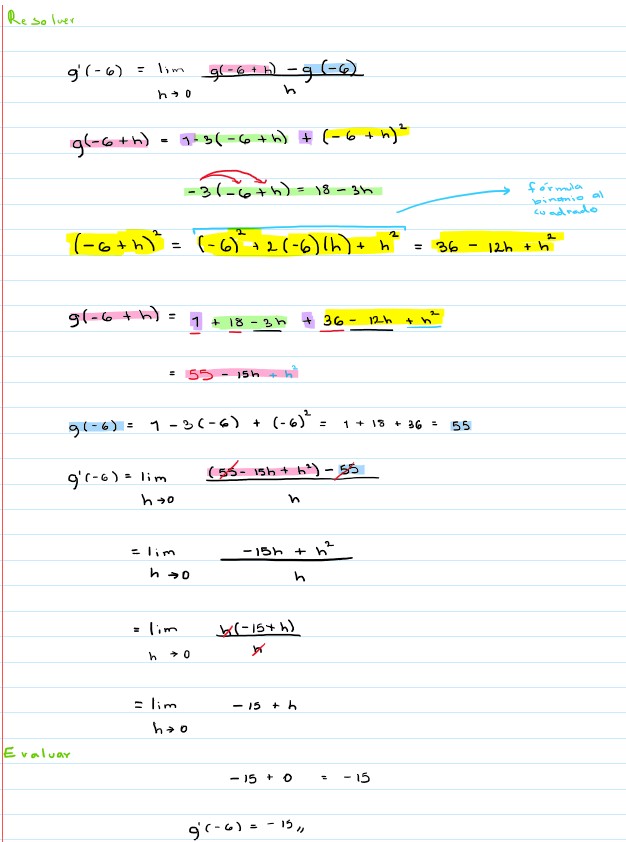 Resolver
g'(-6) = lim h→0 (g(-6+h) - g(-6)) / h
g(-6+h) = 1-3(-6+h) + (-6+h)²
-3(-6+h) = 18-3h
fórmula
binomio al
cuadrado
(-6+h)² = (-6)² + 2(-6)(h) + h² = 36 - 12h + h²
g(-6+h) = 1 + 18 - 3h + 36 - 12h + h²
= 55 - 15h + h²
g(-6) = 1 - 3(-6) + (-6)² = 1 + 18 + 36 = 55
g'(-6) = lim h→0 ((55 - 15h + h²) - 55) / h
= lim h→0 (-15h + h²) / h
= lim h→0 h(-15+h) / h
= lim h→0 -15 + h
Evaluar
-15 + 0 = -15
g'(-6) = -15,,